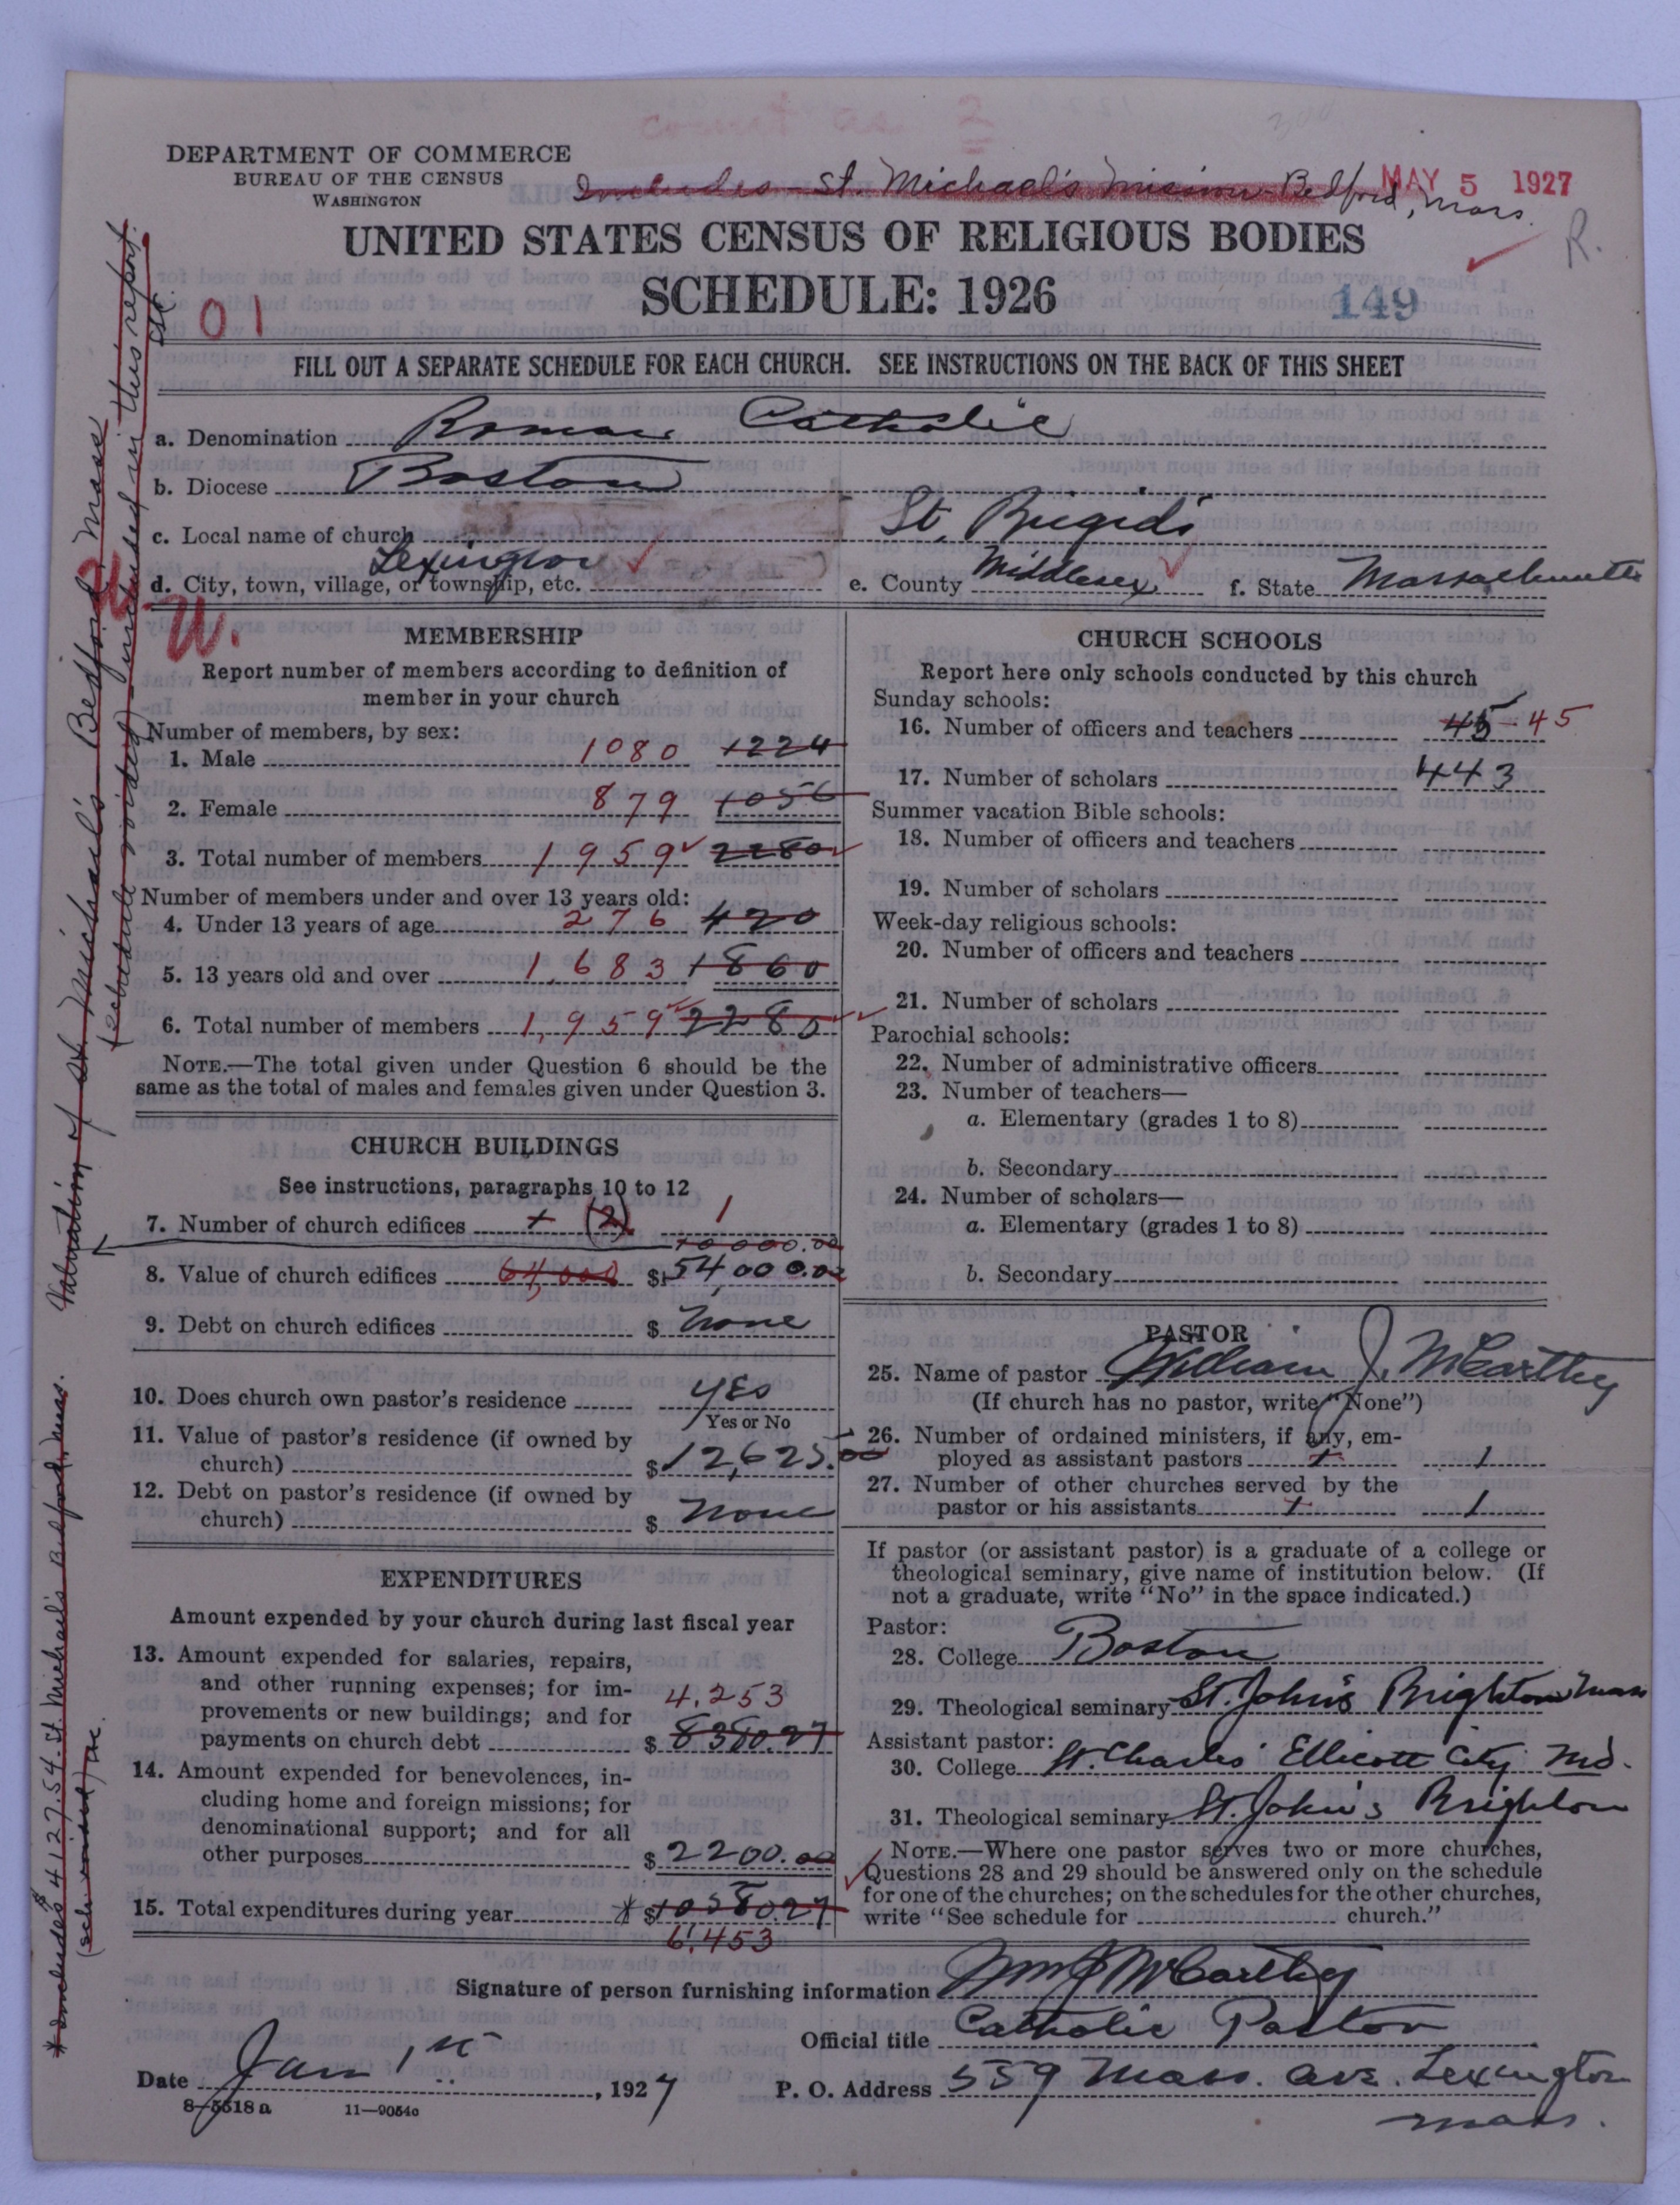 count as 2
300
DEPARTMENT OF COMMERCE
BUREAU OF THE CENSUS
WASHINGTON
Includes - St. Michael's Mission - Bedford, Mass.
MAY 5 1927
R.
UNITED STATES CENSUS OF RELIGIOUS BODIES
SCHEDULE: 1926
149
01
FILL OUT A SEPARATE SCHEDULE FOR EACH CHURCH. SEE INSTRUCTIONS ON THE BACK OF THIS SHEET
a. Denomination Roman Catholic
b. Diocese Boston
c. Local name of church St. Brigid's
d. City, town, village, or township, etc. Lexington
e. County Middlesex f. State Massachusetts
U.
MEMBERSHIP
Report number of members according to definition of
member in your church
Number of members, by sex:
1. Male 1080 1224
2. Female 879 1056
3. Total number of members 1959 2280
Number of members under and over 13 years old:
4. Under 13 years of age 276 420
5. 13 years old and over 1,683 1860
6. Total number of members 1,959 2280
NOTE.—The total given under Question 6 should be the
same as the total of males and females given under Question 3.
CHURCH BUILDINGS
See instructions, paragraphs 10 to 12
7. Number of church edifices + (2) 1
10000.00
8. Value of church edifices 64,000 $ 54,000.00
9. Debt on church edifices $ None
10. Does church own pastor's residence Yes
Yes or No
11. Value of pastor's residence (if owned by
church) $ 12,625.00
12. Debt on pastor's residence (if owned by
church) $ None
EXPENDITURES
Amount expended by your church during last fiscal year
13. Amount expended for salaries, repairs,
and other running expenses; for im-
provements or new buildings; and for 4,253
payments on church debt $ 8380.27
14. Amount expended for benevolences, in-
cluding home and foreign missions; for
denominational support; and for all
other purposes $ 2200.00
15. Total expenditures during year * $ 10580.27
6,453
CHURCH SCHOOLS
Report here only schools conducted by this church
Sunday schools:
16. Number of officers and teachers 45 - 45
17. Number of scholars 443
Summer vacation Bible schools:
18. Number of officers and teachers
19. Number of scholars
Week-day religious schools:
20. Number of officers and teachers
21. Number of scholars
Parochial schools:
22. Number of administrative officers
23. Number of teachers—
a. Elementary (grades 1 to 8)
b. Secondary
24. Number of scholars—
a. Elementary (grades 1 to 8)
b. Secondary
PASTOR
25. Name of pastor William J. McCarthy
(If church has no pastor, write "None")
26. Number of ordained ministers, if any, em-
ployed as assistant pastors + 1
27. Number of other churches served by the
pastor or his assistants + 1
If pastor (or assistant pastor) is a graduate of a college or
theological seminary, give name of institution below. (If
not a graduate, write "No" in the space indicated.)
Pastor:
28. College Boston
29. Theological seminary St. John's Brighton Mass
Assistant pastor:
30. College St. Charles' Ellicott City Md.
31. Theological seminary St. John's Brighton
NOTE.—Where one pastor serves two or more churches,
Questions 28 and 29 should be answered only on the schedule
for one of the churches; on the schedules for the other churches,
write "See schedule for church."
Signature of person furnishing information Wm J McCarthy
Official title Catholic Pastor
Date Jan 1st, 1927
P. O. Address 559 Mass. Ave. Lexington
Mass.
8-5518 a 11—9054c
Valuation of St. Michael's Bedford, Mass
(schedule voided) included in this report.
* Includes $4127.54 St. Michael's Bedford, Mass.
(sch voided)